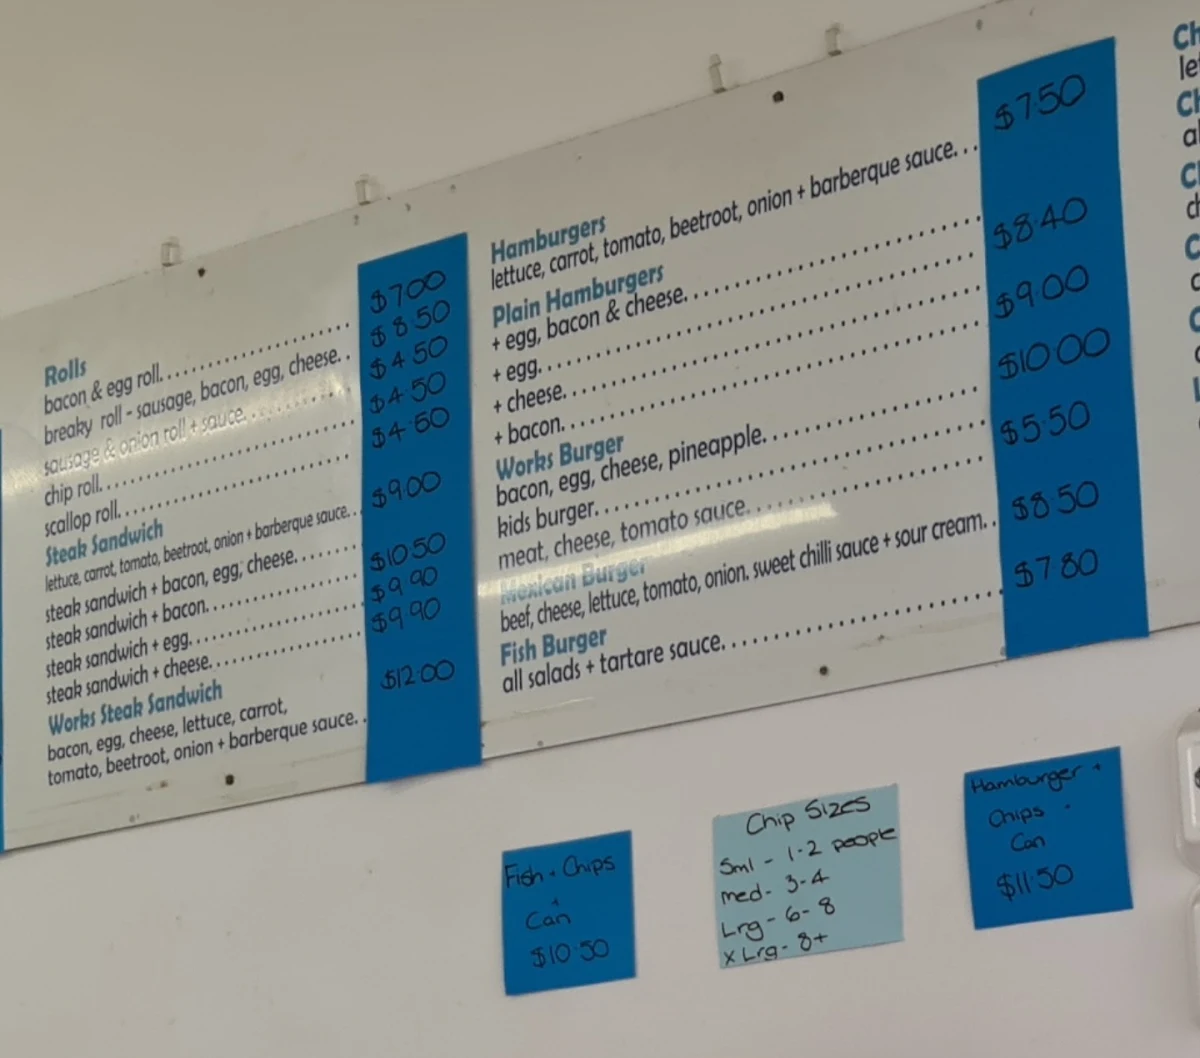 Rolls
bacon & egg roll
breaky roll - sausage, bacon, egg, cheese. .
sausage & onion roll + sauce
chip roll
scallop roll
Steak Sandwich
lettuce, carrot, tomato, beetroot, onion + barberque sauce. .
steak sandwich + bacon, egg, cheese
steak sandwich + bacon
steak sandwich + egg
steak sandwich + cheese
Works Steak Sandwich
bacon, egg, cheese, lettuce, carrot,
tomato, beetroot, onion + barberque sauce. .
$7.00
$8.50
$4.50
$4.50
$4.50
$9.00
$10.50
$9.90
$9.90
$12.00
Hamburgers
lettuce, carrot, tomato, beetroot, onion + barberque sauce. . .
Plain Hamburgers
+ egg, bacon & cheese
+ egg
+ cheese
+ bacon
Works Burger
bacon, egg, cheese, pineapple
kids burger
meat, cheese, tomato sauce
Mexican Burger
beef, cheese, lettuce, tomato, onion. sweet chilli sauce + sour cream. .
Fish Burger
all salads + tartare sauce
$7.50
$8.40
$9.00
$10.00
$5.50
$8.50
$7.80
Fish + Chips
+
Can
$10.50
Chip Sizes
Sml - 1-2 people
med - 3-4
Lrg - 6-8
x Lrg - 8+
Hamburger +
Chips
Can
$11.50